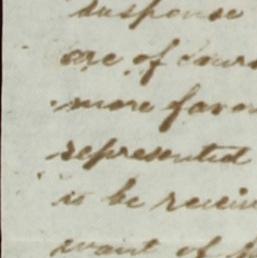 suspense
are of cours
more favor
represented
to be receiv
want of